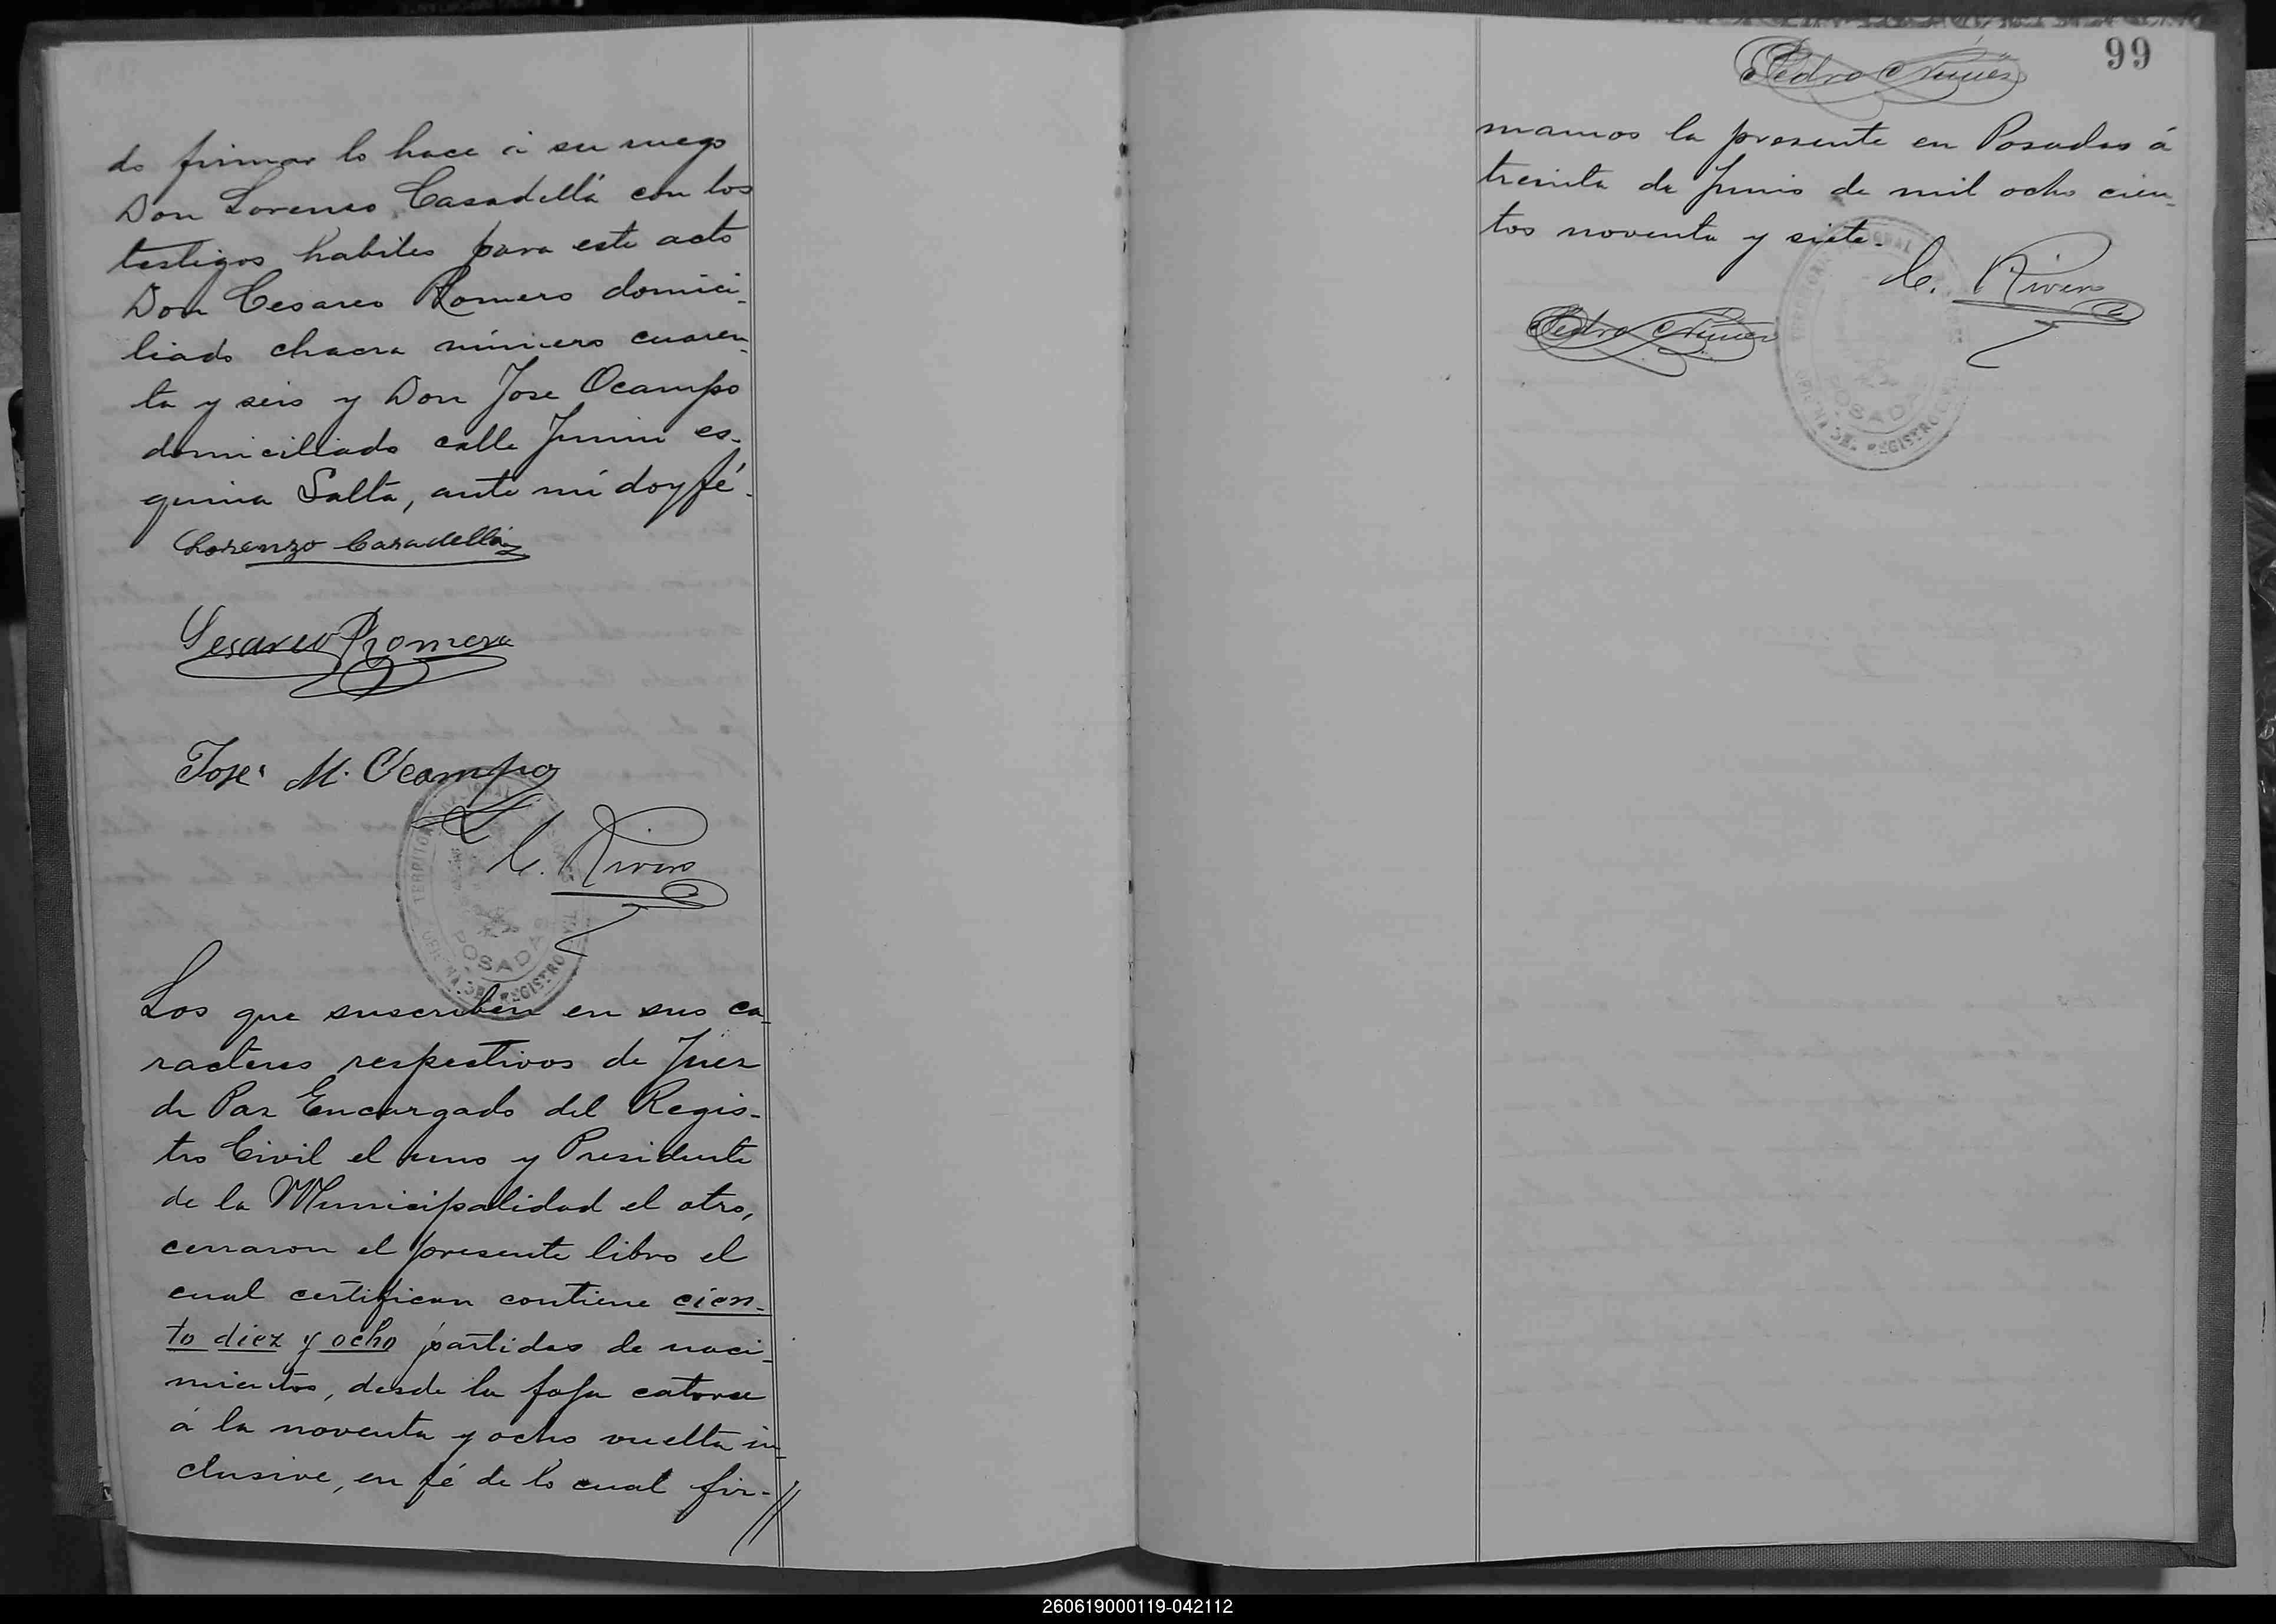 do firmar lo hace á su ruego
Don Lorenso Casadellá con los
testigos habiles para este acto
Don Cesareo Romero domici-
liado chacra número cuaren-
ta y seis y Don Jose Ocampo
domiciliado calle Junin es-
quina Salta, ante mí doy fé.
Lorenzo Casadellá
Sesareo Romero
José M. Ocampo
C. Rivero
POSADAS
OFICINA DEL REGISTRO CIVIL
Los que suscriben en sus ca-
racteres respectivos de Juez
de Paz Encargado del Regis-
tro Civil el uno y Presidente
de la Municipalidad el otro,
cerraron el presente libro el
cual certifican contiene cien-
to diez y ocho partidas de naci-
mientos, desde la foja catorse
á la noventa y ocho vuelta in-
clusive, en fé de lo cual fir-//
Pedro Nuñez
99
mamos la presente en Posadas á
treinta de Junio de mil ocho cien-
tos noventa y siete.
C. Rivero
Pedro Nuñez
POSADAS
OFICINA DEL REGISTRO CIVIL
260619000119-042112